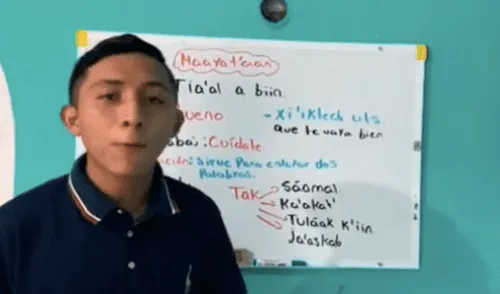 Maayat'aan
Tia'al a biin.
ueno - Xi'iktech uts.
que te vaya bien
: Cuídate.
: Sirve Para enlazar dos
Palabras.
Tak Sáamal
Ka'aka't
Tuláak k'iin
Ja'askab